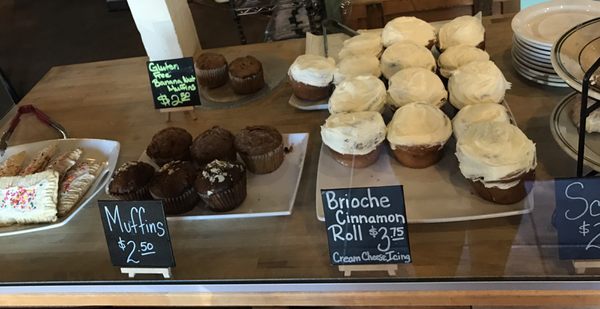 Gluten
Free
Banana Nut
Muffins
$2.50
Muffins
$2.50
Brioche
Cinnamon
Roll $3.75
Cream Cheese Icing